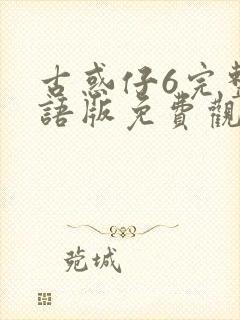 古惑仔6完整
語版免費觀
菀城